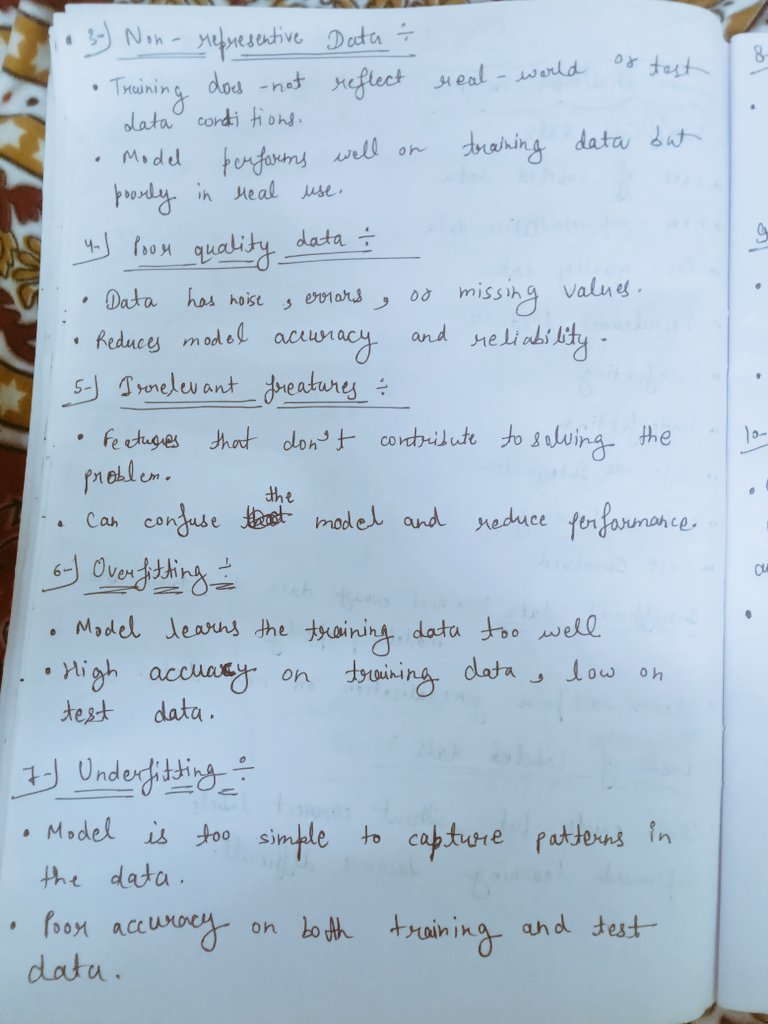 3-) Non-representive Data ÷
• Training does-not reflect real-world or test
data conditions.
• Model performs well on training data but
poorly in real use.
4-) Poor quality data ÷
• Data has noise, errors, or missing values.
• Reduces model accuracy and reliability.
5-) Irrelevant freatures ÷
• Features that don't contribute to solving the
problem.
• Can confuse the model and reduce performance.
6-) Overfitting ÷
• Model learns the training data too well
• High accuacy on training data, low on
test data.
7-) Underfitting ÷
• Model is too simple to capture patterns in
the data.
• Poor accuracy on both training and test
data.
8-
9
10-